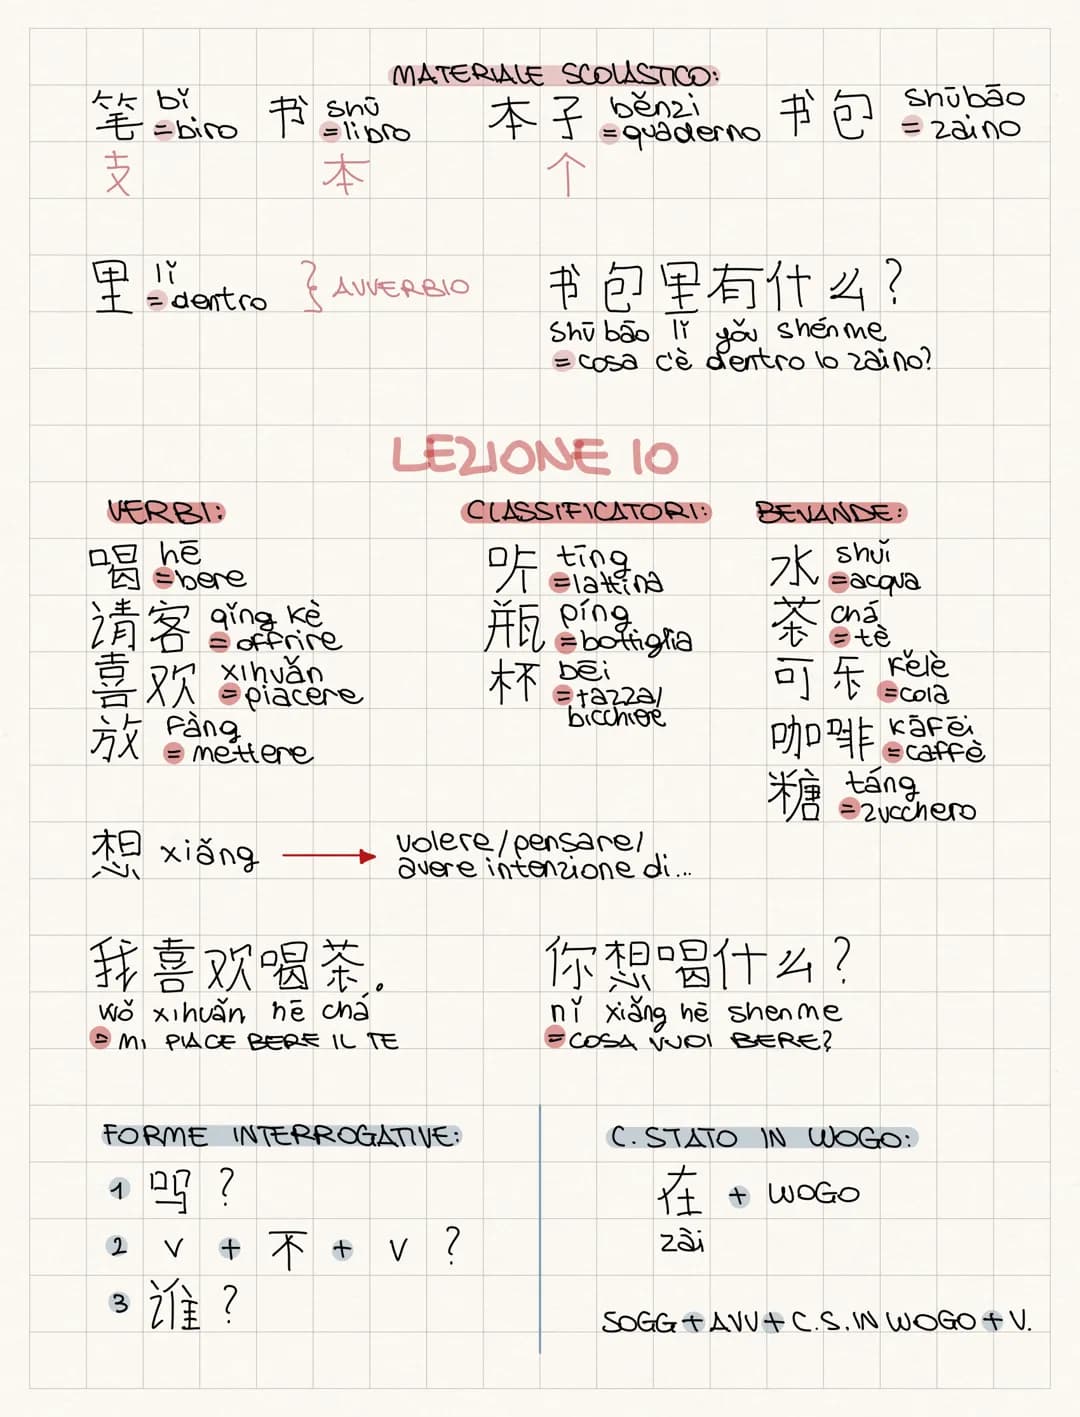 MATERIALE SCOLASTICO:
笔 bǐ =biro 书 shū =libro 本子 běnzi =quaderno 书包 shūbāo =zaino
支 本 个
里 lǐ =dentro } AVVERBIO
书包里有什么?
shū bāo lǐ yǒu shénme
=cosa c'è dentro lo zaino?
LEZIONE 10
VERBI:
喝 hē =bere
请客 qǐng kè =offrire
喜欢 xihuǎn =piacere
放 fàng =mettere
CLASSIFICATORI:
听 tīng =lattina
瓶 píng =bottiglia
杯 bēi =tazza/
bicchiere
BEVANDE:
水 shuǐ =acqua
茶 chá =tè
可乐 kělè =cola
咖啡 kāfēi =caffè
糖 táng =zucchero
想 xiǎng → volere/pensare/
avere intenzione di...
我喜欢喝茶.
wǒ xihuǎn hē chá
= MI PIACE BERE IL TE
你想喝什么?
nǐ xiǎng hē shenme
=COSA VUOI BERE?
FORME INTERROGATIVE:
1 吗?
2 V + 不 + V ?
3 谁?
C. STATO IN WOGO:
在 + WOGO
zài
SOGG + AVV + C.S. IN WOGO + V.